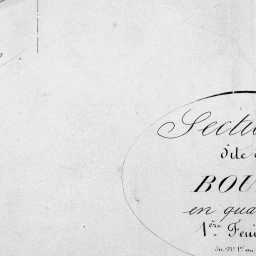 Section
dite
ROU
en qua
1ère Feui
du N° 1er au